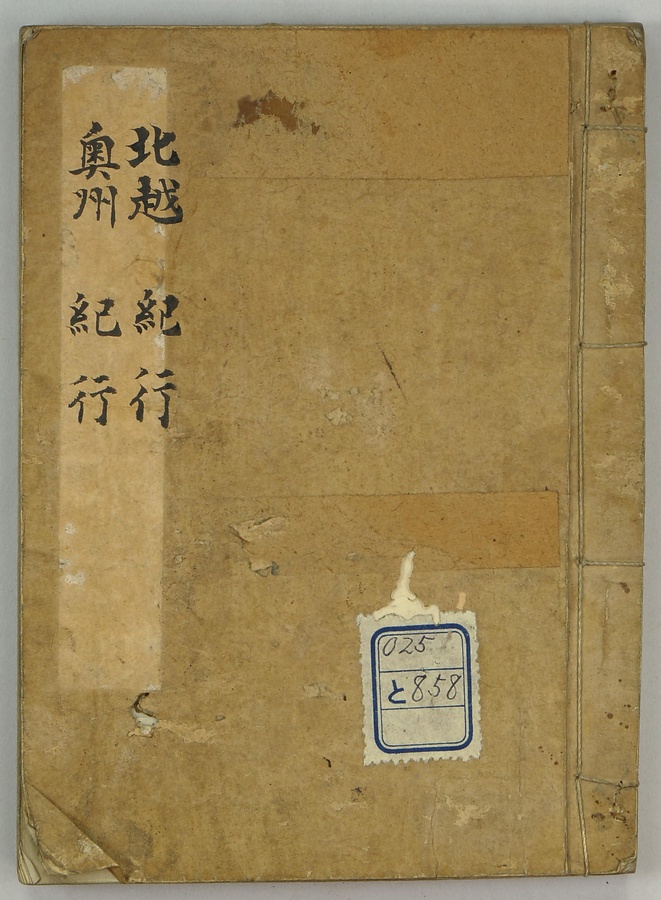 北越 紀行
奥州 紀行
025
と858